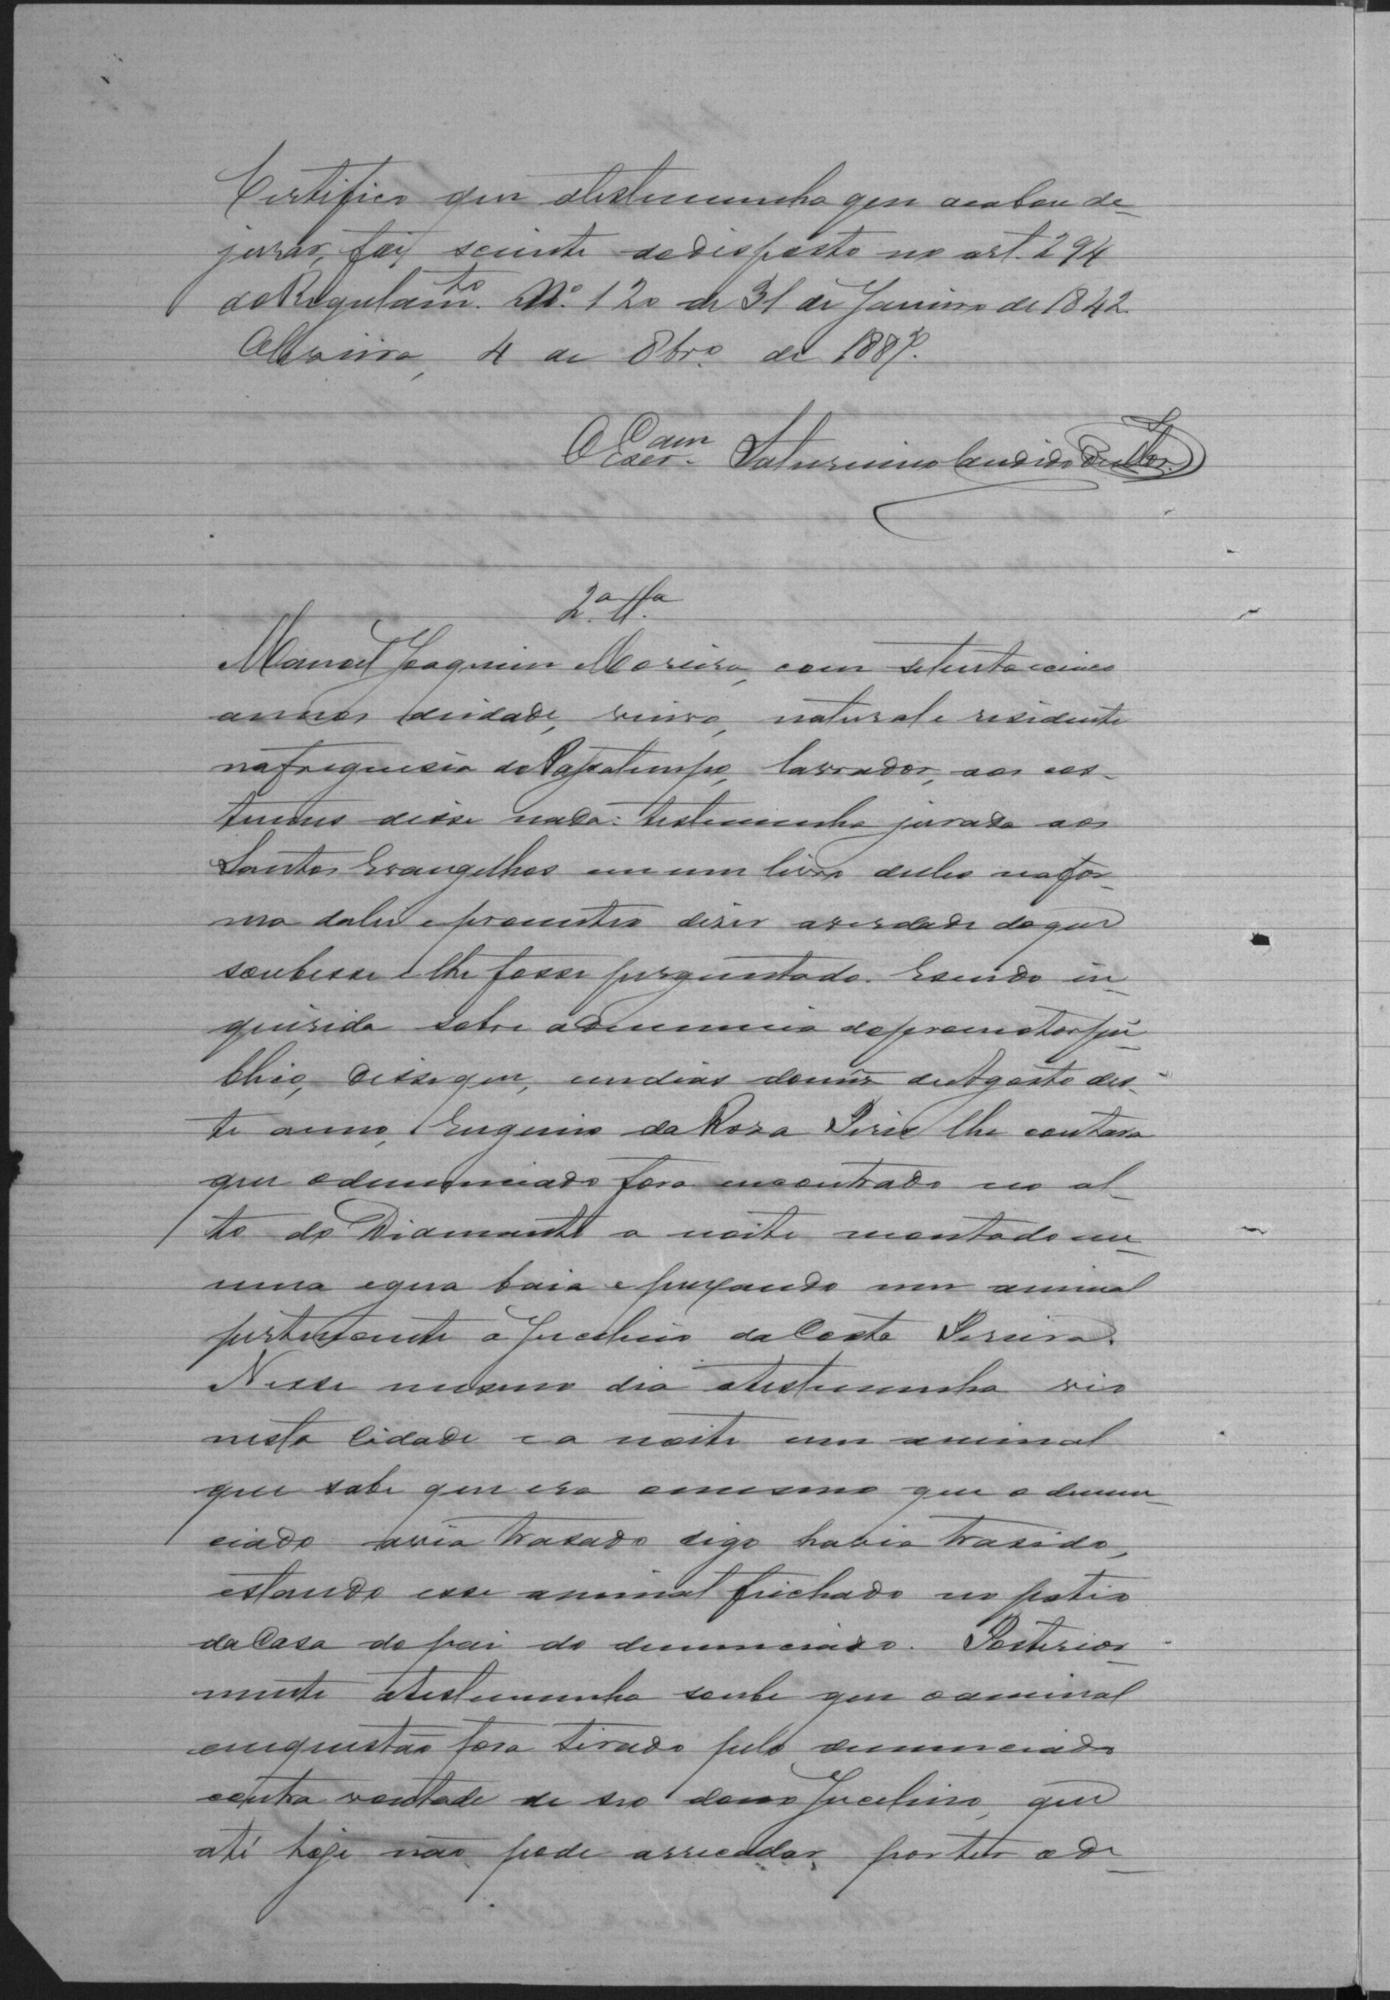 Certifico que atestemunha que acabou de
jurar, foi sciente dodisposto no art. 294
do Regulam.to N.º 120 de 31 de Janeiro de 1842.
Oliveira, 4 de 8bro. de 1887.
O Escr.am Saturnino Candido
2.a tt.a
Manoel Joaquim Moreira, com setenta cinco
annos deidade, viuvo, natural e residente
nafreguesia do Passatempo, lavrador, aos cos-
tumes disse nada: testemunha jurada aos
Santos Evangelhos em um livro delles nafor-
ma dalei e prometteo diser averdade doque
soubesse e lhe fosse perguntado. Esendo in-
quirida sobre adenuncia dopromotor pu-
blico, disse que, emdias domez deAgosto des-
te anno, Eugenio da Rosa Peres lhe contara
que odenunciado fora encontrado no al-
to do Diamante a noite montado em
uma egua baia e puxando um animal
pertencente a Jucelino da Costa Pereira.
Nesse mesmo dia atestemunha vio
nesta Cidade e a noite um animal
que sabe que era omesmo que o denun-
ciado avia trasado digo havia trasido,
estando esse animal fechado no patio
da Casa do pai do denunciado. Posterior-
mente atestemunha soube que oanimal
emquestão fora tirado pelo denunciado
contra vontade de seo dono Jucelino, que
até hoje não pode arrecadar, por ter o de-